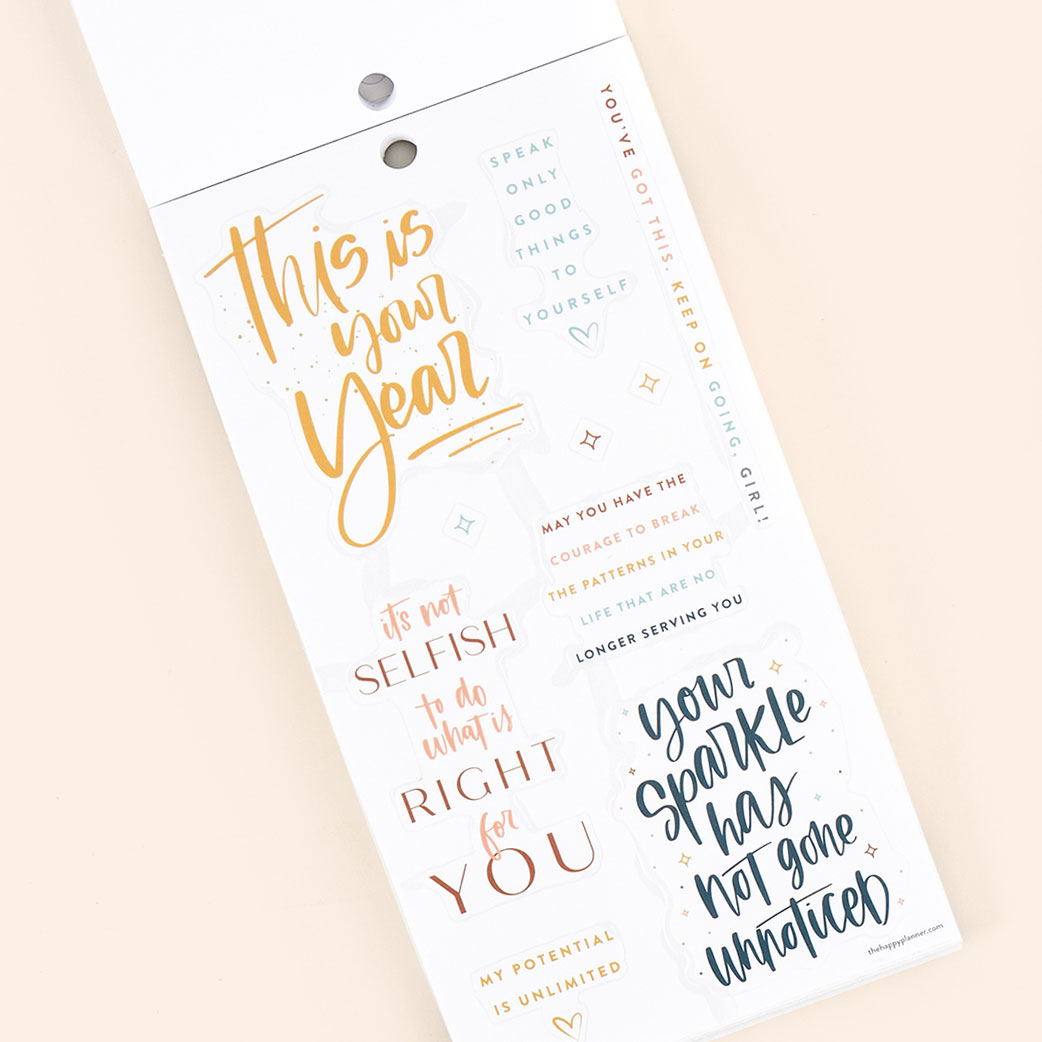 this is
your
year
SPEAK
ONLY
GOOD
THINGS
TO
YOURSELF
YOU'VE GOT THIS. KEEP ON GOING, GIRL!
MAY YOU HAVE THE
COURAGE TO BREAK
THE PATTERNS IN YOUR
LIFE THAT ARE NO
LONGER SERVING YOU
it's not
SELFISH
to do
what is
RIGHT
for
YOU
your
sparkle
has
not gone
unnoticed
MY POTENTIAL
IS UNLIMITED
thehappyplanner.com